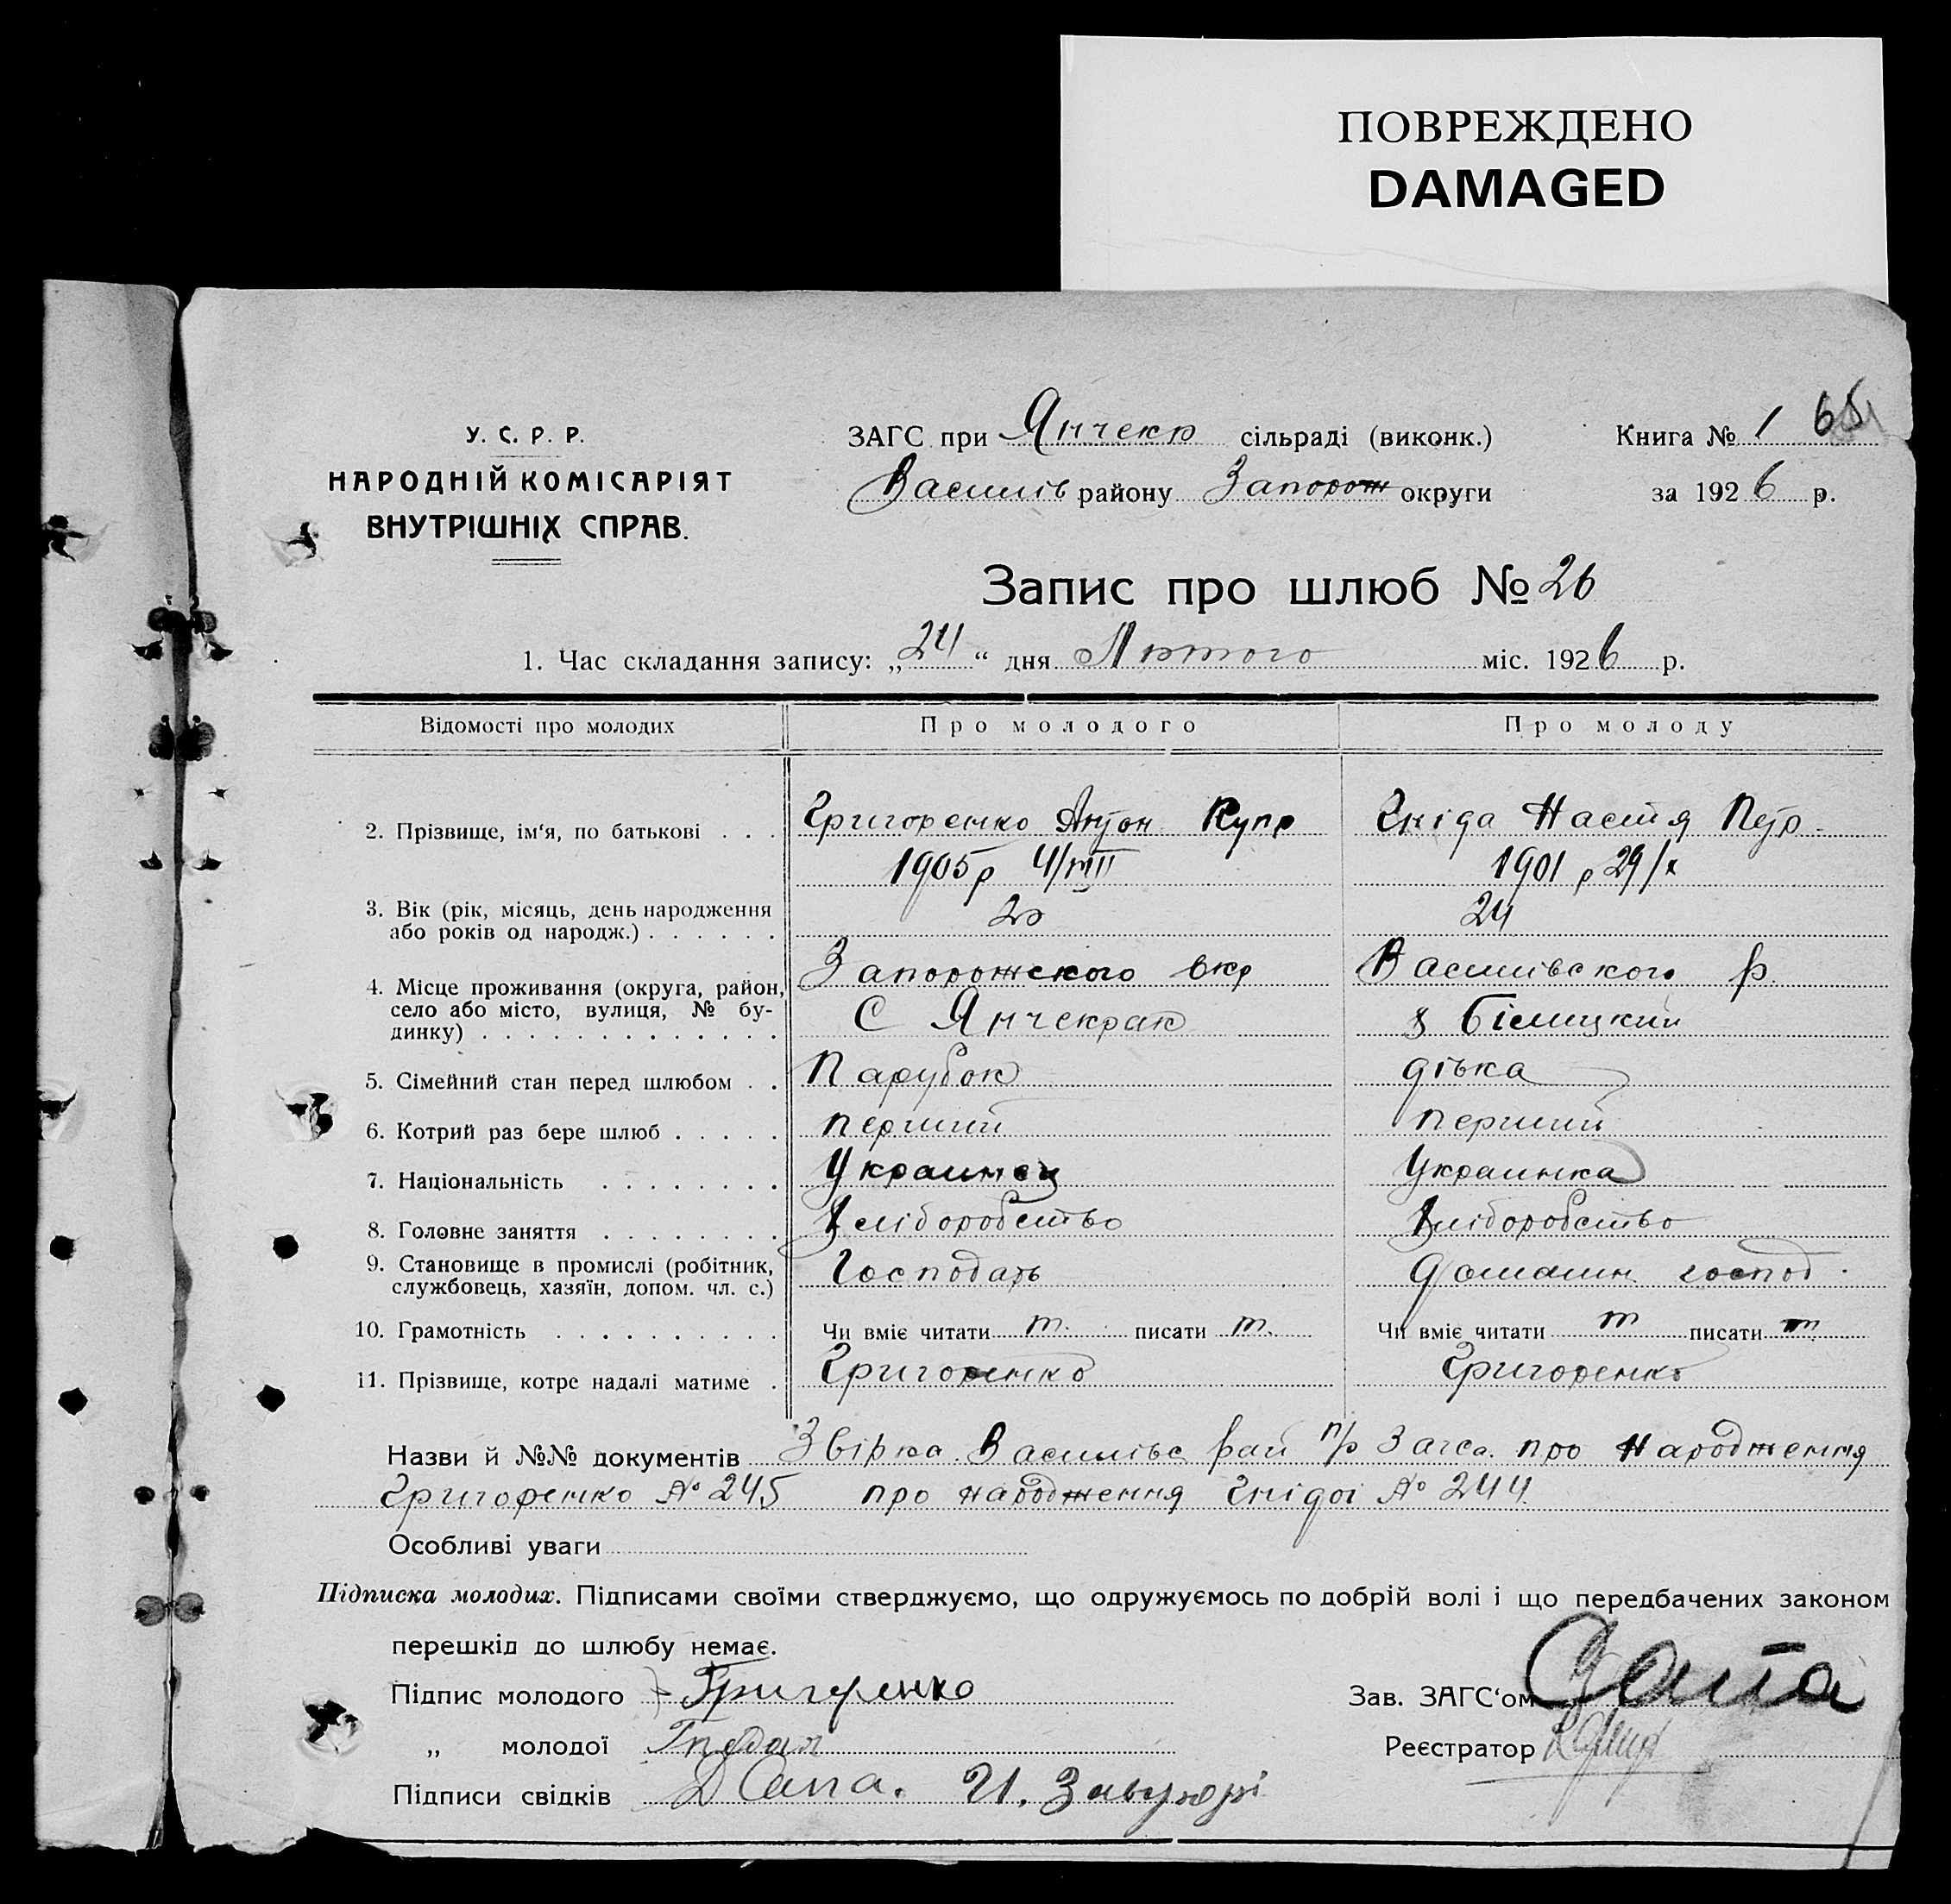 ПОВРЕЖДЕНО
DAMAGED
У. С. Р. Р.
НАРОДНІЙ КОМІСАРІЯТ
ВНУТРІШНІХ СПРАВ.
ЗАГС при Янчекр сільраді (виконк.)
Василів району Запорож округи
Книга № 1 65
за 1926 р.
Запис про шлюб № 26
1. Час складання запису: „24“ дня Лютого міс. 1926 р.
Відомості про молодих Про молодого Про молоду
2. Прізвище, ім‘я, по батькові . . . Григоренко Антон Купр Гніда Настя Петр.
1905 р 4/VIII 1901 р 29/X
3. Вік (рік, місяць, день народження
або років од народж.) . . . . . . 20 24
4. Місце проживання (округа, район,
село або місто, вулиця, № бу-
динку) . . . . . . . . . . . . .
Запорожского окр Василівского р.
С Янчекрак х Білицкий
5. Сімейний стан перед шлюбом . . Парубок дівка
6. Котрий раз бере шлюб . . . . . перший перший
7. Національність . . . . . . . . Украинец Украинка
8. Головне заняття . . . . . . . . Хліборобство Хліборобство
9. Становище в промислі (робітник,
службовець, хазяїн, допом. чл. с.)
Господарь домашн господ.
10. Грамотність . . . . . . . . . . Чи вміє читати т. писати т. Чи вміє читати т писати т
11. Прізвище, котре надалі матиме . Григоренко Григоренко
Назви й №№ документів Звірка Василівс рай п/р Загса. про Народження
Григоренко № 245 про народження Гнідої № 244.
Особливі уваги
Підписка молодих. Підписами своїми стверджуємо, що одружуємось по добрій волі і що передбачених законом
перешкід до шлюбу немає.
Підпис молодого Григоренко
„ молодої
Підписи свідків
Зав. ЗАГС‘ом
Реєстратор